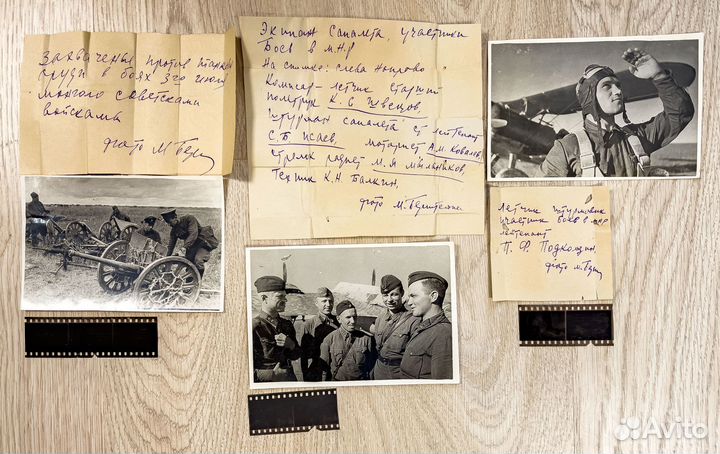 Захваченые против танков
орудия в боях 3го июля
монголо советскими
войсками
фото М Бер
Экипаж самолета, участники
боев в МНР
На снимке: слева направо
Комисар-летчик старший
политрук К. С Швецов
штурман самолета ст лейтенант
С.Б Исаев, мотарист А.М. Ковалев,
стрелок радист М. Я Мыльников,
Техник К.Н Балкин,
фото М. Бернштейн
Летчик штурмовик
участник боев в МНР
лейтенант
П. Ф. Подкользин,
фото М.
Avito